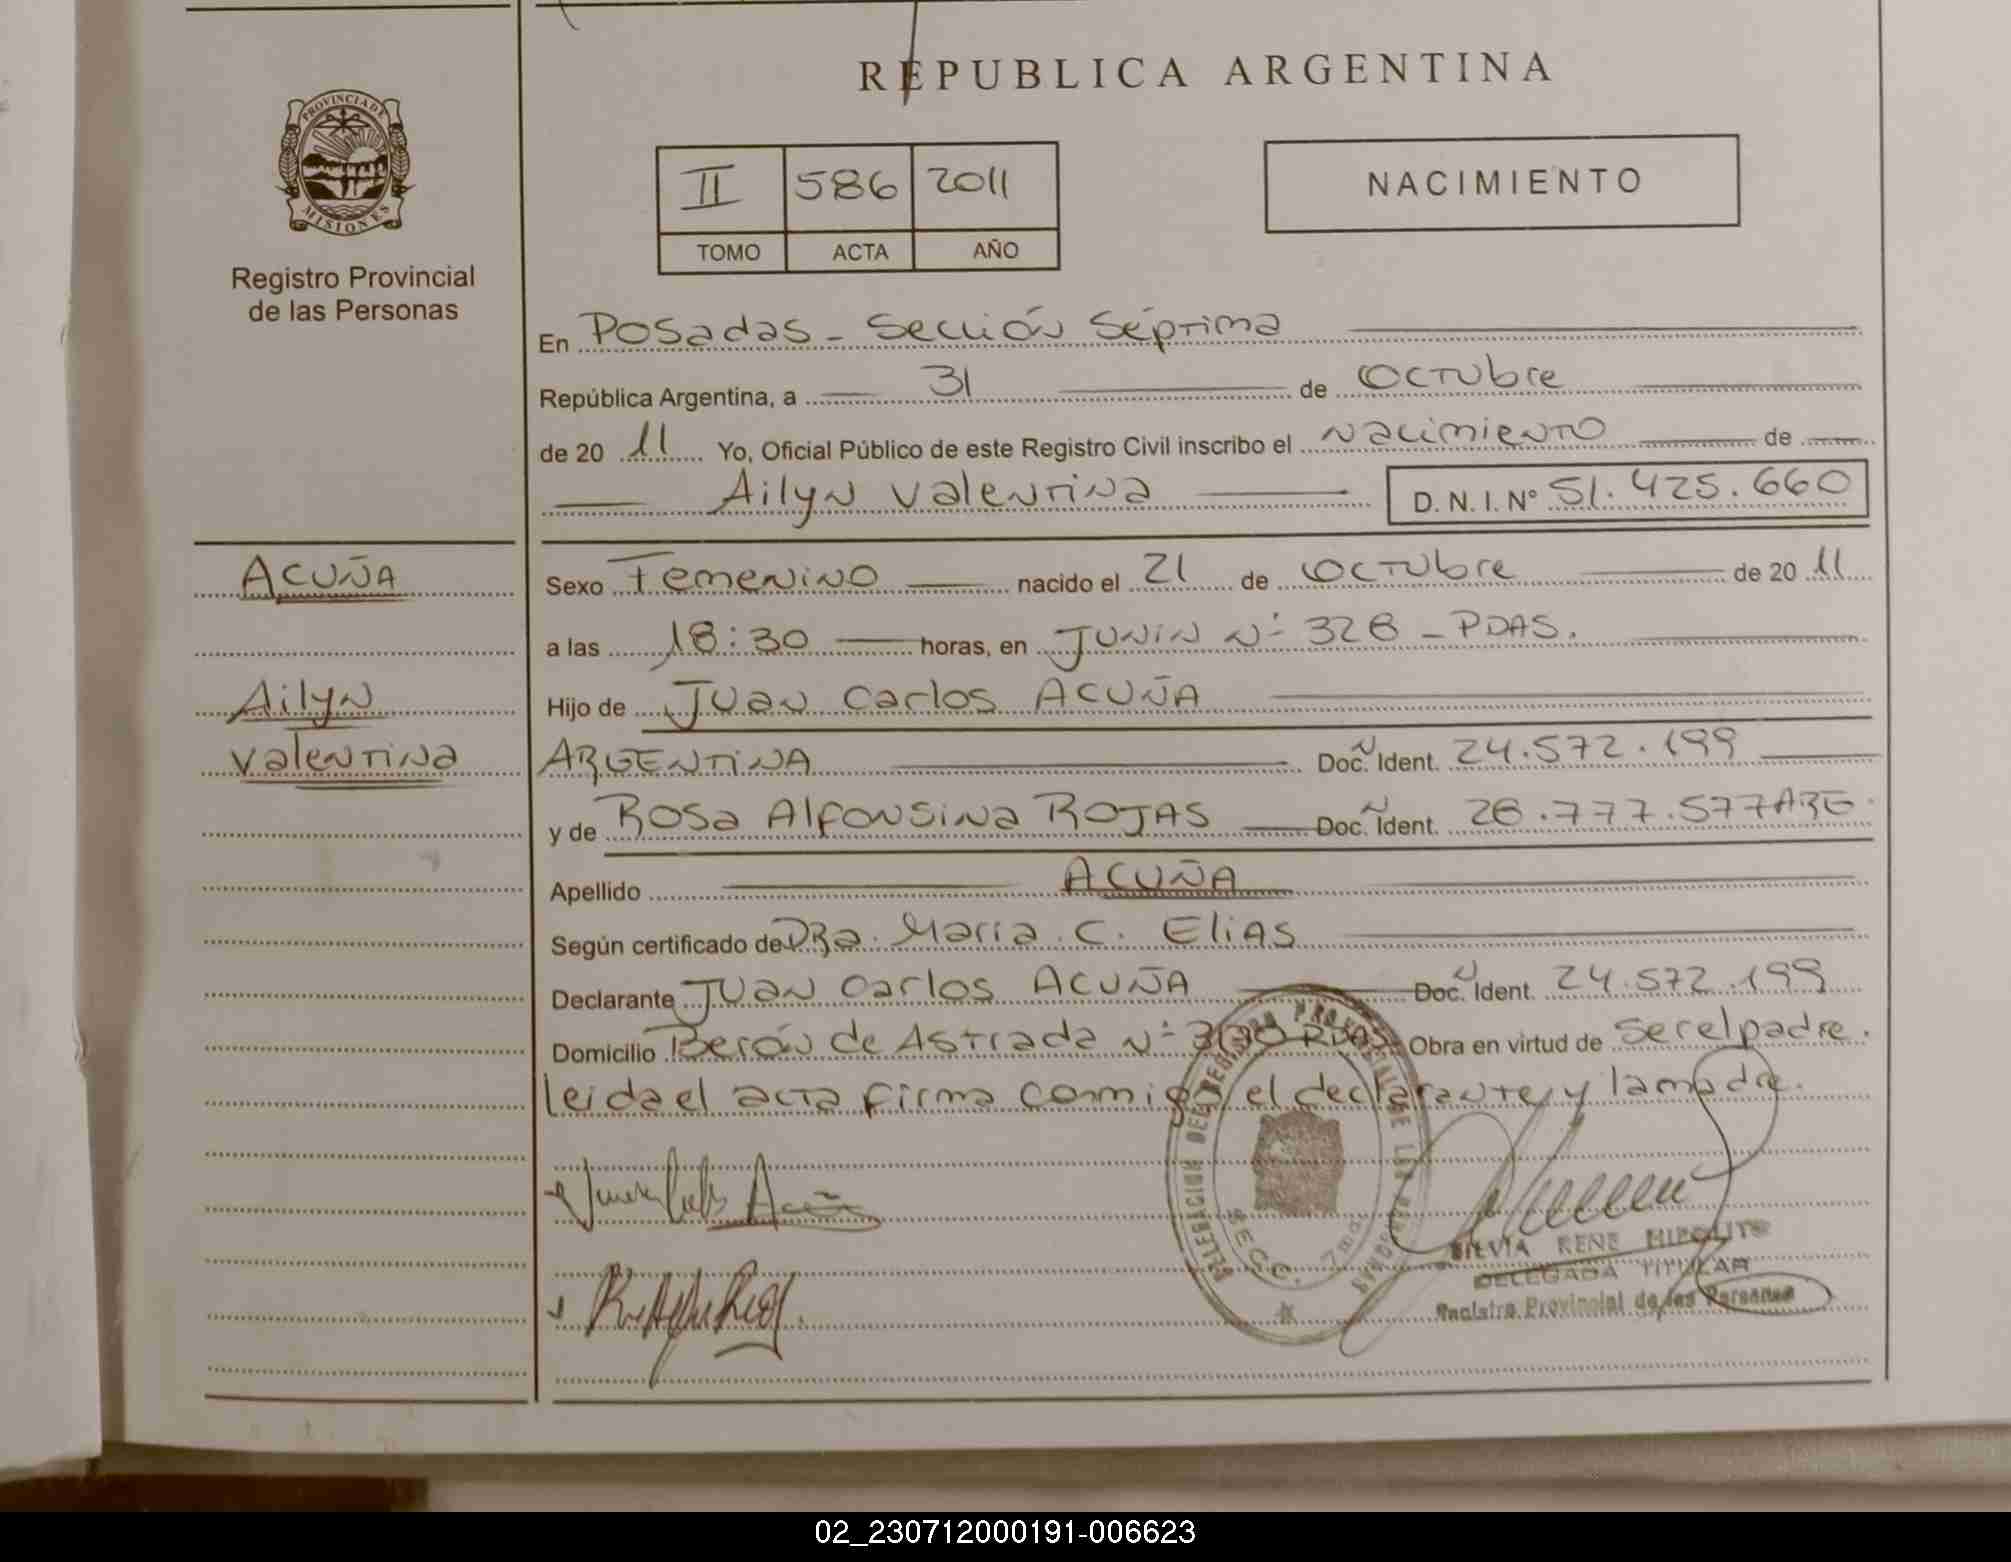 REPUBLICA ARGENTINA
PROVINCIA DE
MISIONES
Registro Provincial
de las Personas
II 586 2011
TOMO ACTA AÑO
NACIMIENTO
En Posadas - Sección Séptima
República Argentina, a 31 de Octubre
de 20 11 Yo, Oficial Público de este Registro Civil inscribo el Nacimiento de
Ailyn Valentina D. N. I. Nº 51.425.660
ACUÑA
Ailyn
Valentina
Sexo Femenino nacido el 21 de Octubre de 20 11
a las 18:30 horas, en JUNIN Nº 328 - PDAS.
Hijo de Juan Carlos ACUÑA
ARGENTINA Doc. Ident. 24.572.199
y de Rosa Alfonsina ROJAS Doc. Ident. 28.777.577 ARG.
Apellido ACUÑA
Según certificado de DRa. Maria C. Elias
Declarante Juan Carlos ACUÑA Doc. Ident. 24.572.199
Domicilio Berón de Astrada Nº Obra en virtud de ser el padre.
leida el acta firma conmigo el declarante y la madre.
DELEGACION DEL REGISTRO PROVINCIAL DE LAS PERSONAS
SECC. 7ma
SILVIA RENE HIPOLITO
DELEGADA TITULAR
Registro Provincial de las Personas
02_230712000191-006623